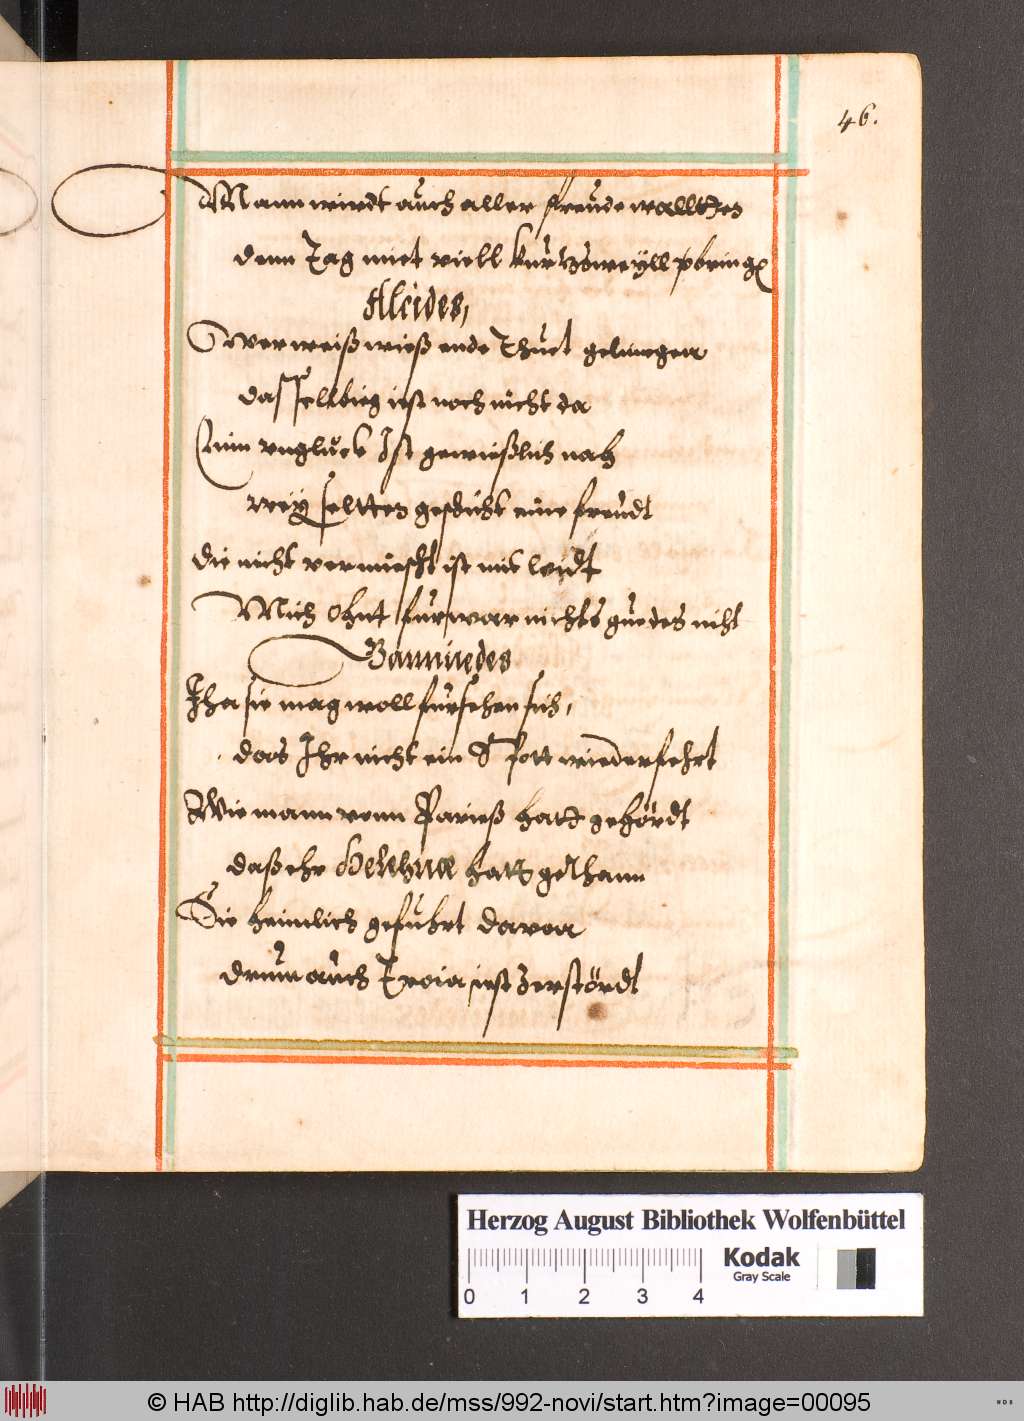 46.
Mann wirdt auch aller freude walltten
denn Tag miet viell kurtzsweyll pbring
Alcides,
Wer weiß wieß ende Thuet gelingen
dasselbig ist noch nicht da
Ein vngluck Ist gewießlich nah
wey seltten geschicht eine freudt
die nicht vermischt ist mit leidt
Mich ohnt furwar nichts guedes niht
Banniedes
Jha sie mag woll fursehen sich,
das Ihr nicht ein Spott wiederfehrt
Wie mann vonn Parieß hatt gehördt
daß ehr Helehnæ hatt gethann
Sie heimlich gefuhrt davon
drum auch Troia ist zerstördt
Herzog August Bibliothek Wolfenbüttel
Kodak
Gray Scale
0 1 2 3 4
© HAB http://diglib.hab.de/mss/992-novi/start.htm?image=00095